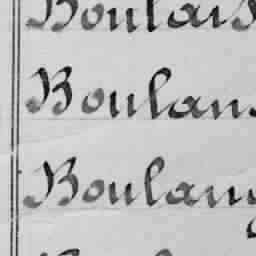 Boulais
Boulan
Boulang